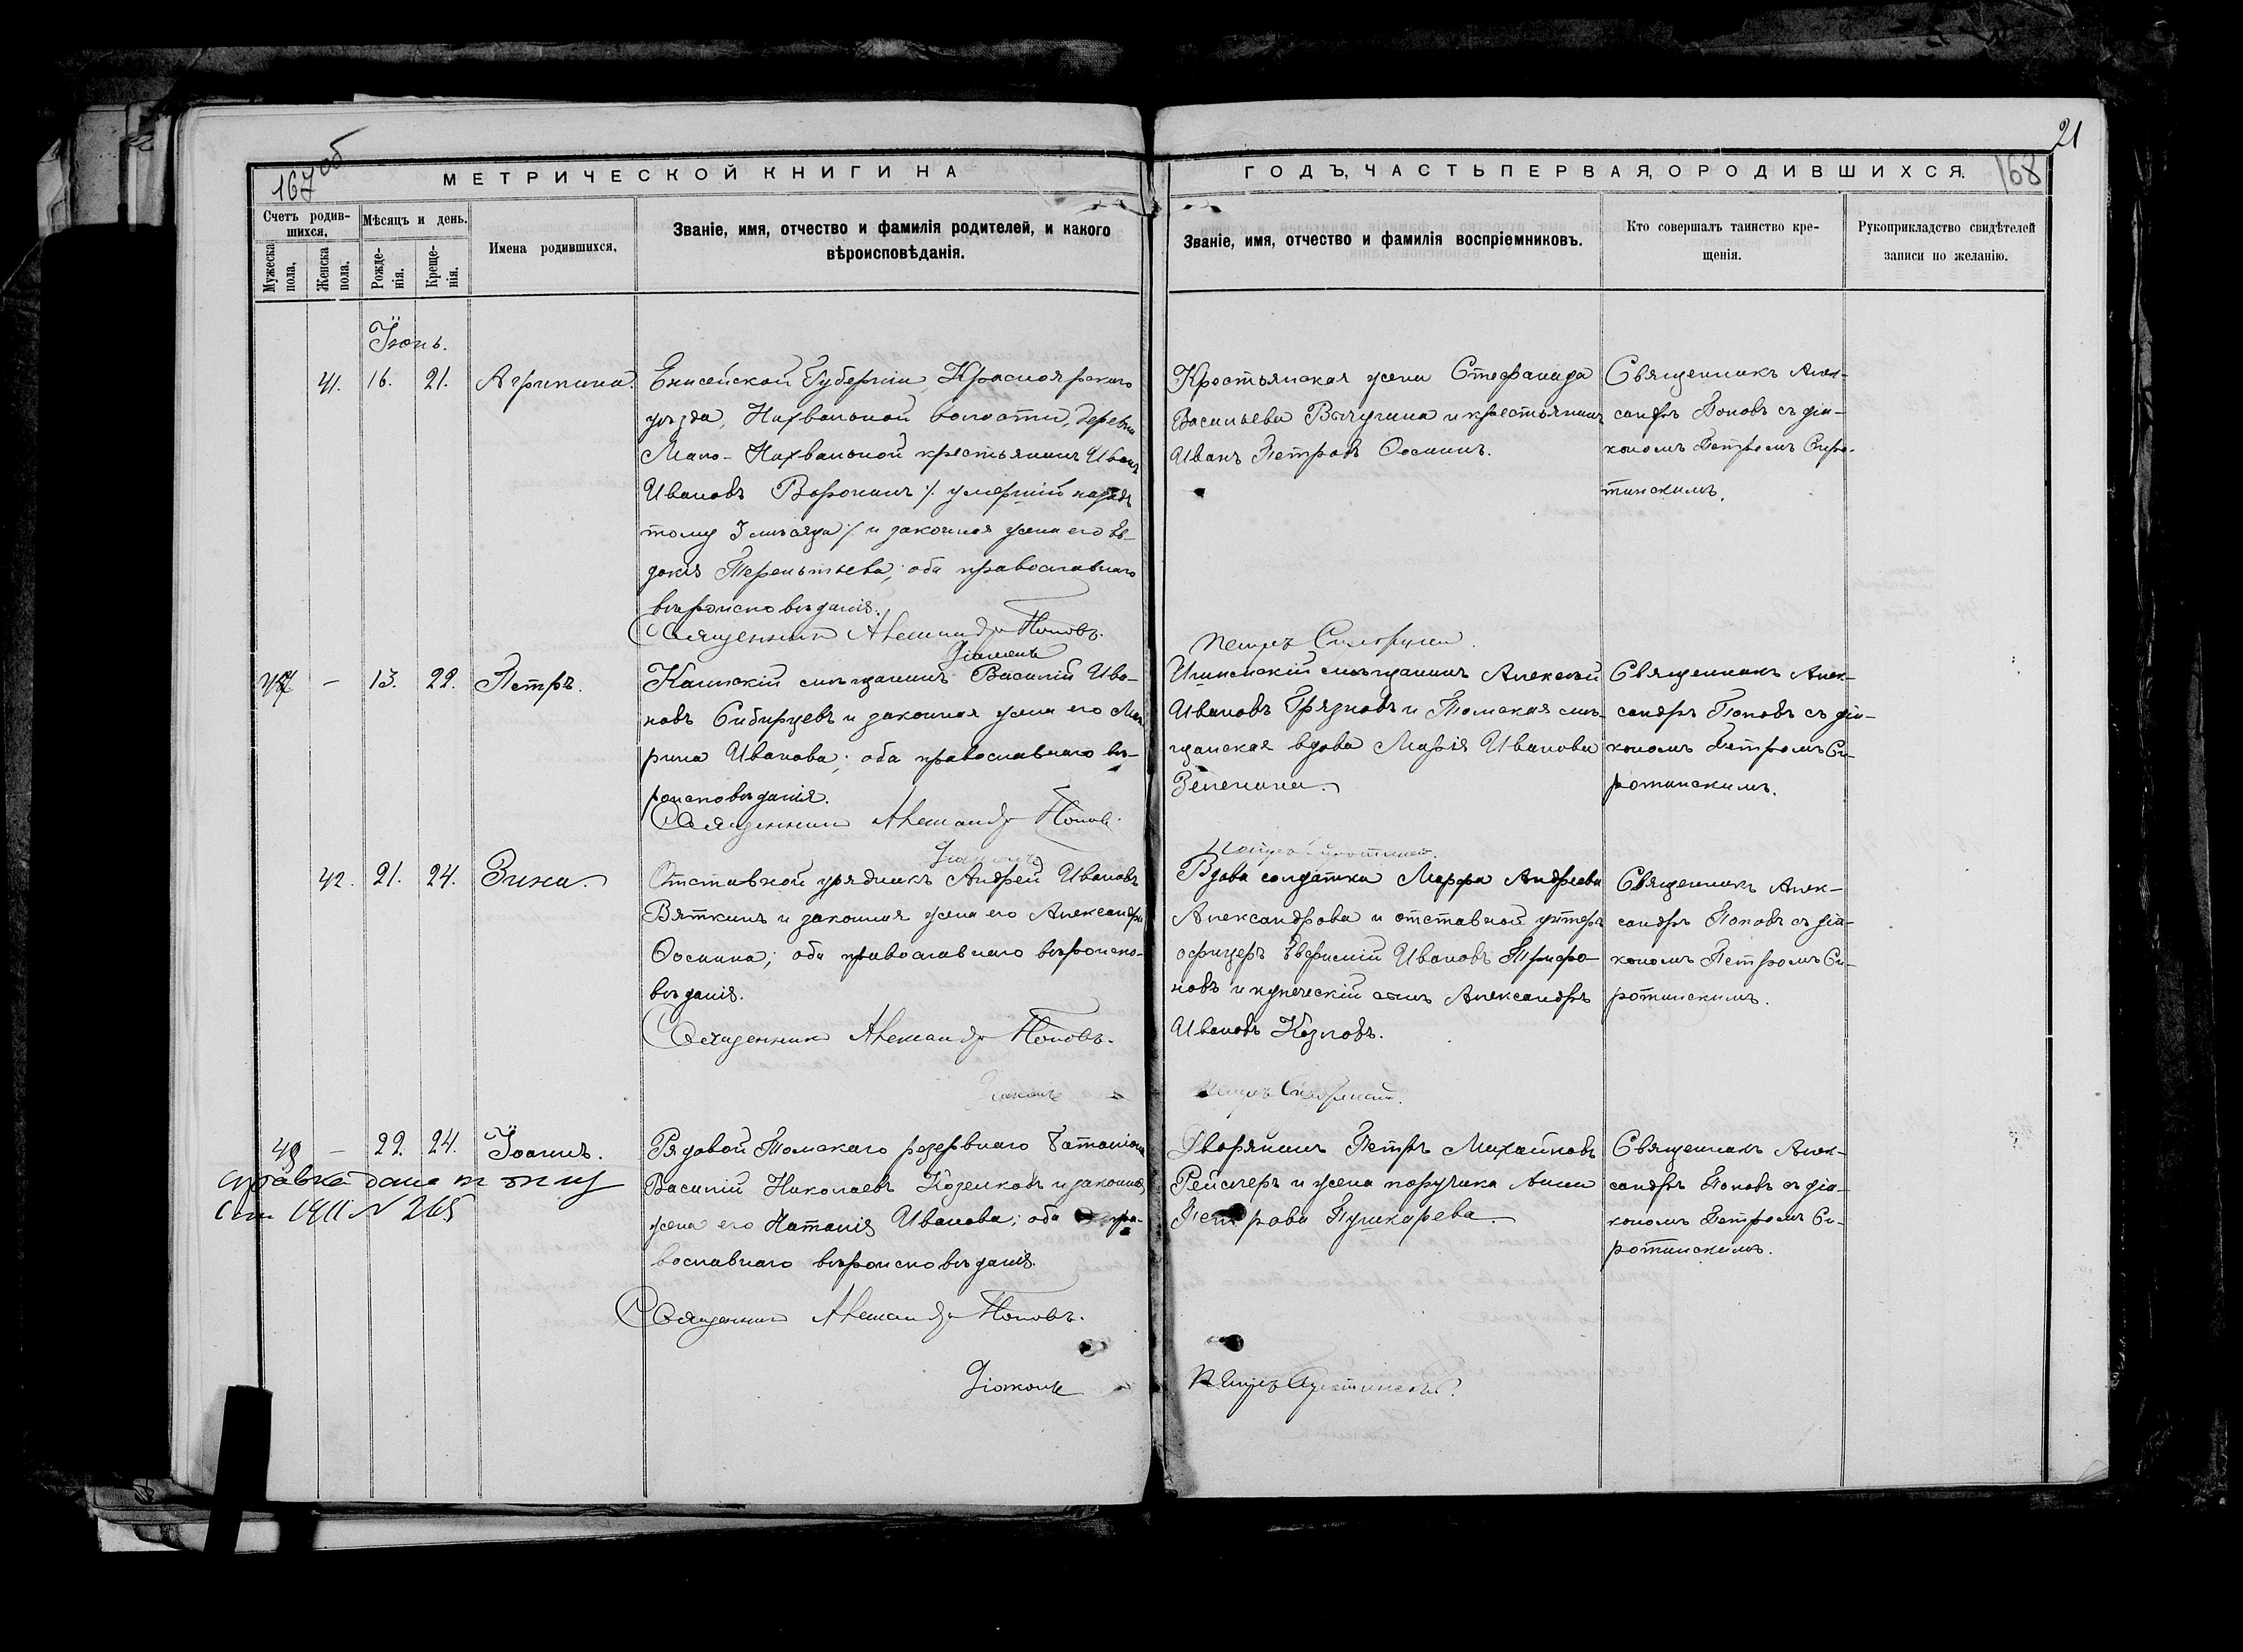 167 об
21
168
МЕТРИЧЕСКОЙ КНИГИ НА
ГОДЪ, ЧАСТЬ ПЕРВАЯ, О РОДИВШИХСЯ.
Счетъ родив-
шихся.
Мужеска
пола.
Женска
пола.
Мѣсяцъ и день.
Рожде-
нія.
Креще-
нія.
Имена родившихся.
Званіе, имя, отчество и фамилія родителей, и какого
вѣроисповѣданія.
Званіе, имя, отчество и фамилія воспріемниковъ.
Кто совершалъ таинство кре-
щенія.
Рукоприкладство свидѣтелей
записи по желанію.
Іюнь.
41. 16. 21. Агрипина.
Енисейской Губерніи Красноярскаго
уѣзда, Нахвальной волости, деревни
Мало-Нахвальной крестьянинъ Иванъ
Ивановъ Воронинъ /. умершій назадъ
тому 3 мѣсяца /. и законная жена его Ев-
докія Терентьева; оба православнаго
вѣроисповѣданія.
Священникъ Александръ Поповъ.
Діаконъ
Крестьянская жена Стефанида
Васильева Вычугина и крестьянинъ
Иванъ Петровъ Осминъ.
Священникъ Алек-
сандръ Поповъ съ діа-
кономъ Петромъ Сиро-
тинскимъ.
Петръ
– 13. 22. Петръ.
Каинскій мѣщанинъ Василій Ива-
новъ Сибирцевъ и законная жена его Ма-
рина Иванова; оба православнаго вѣ-
роисповѣданія.
Священникъ Александръ Поповъ.
Діаконъ
Ишимскій мѣщанинъ Алексѣй
Ивановъ Грязновъ и Томская мѣ-
щанская вдова Марія Иванова
Зеленина.
Священникъ Алек-
сандръ Поповъ съ діа-
кономъ Петромъ Си-
ротинскимъ.
42. 21. 24. Зина.
Отставной урядникъ Андрей Ивановъ
Вяткинъ и законная жена его Александра
Осмина; оба православнаго вѣроиспо-
вѣданія.
Священникъ Александръ Поповъ.
Діаконъ
Вдова солдатка Марфа Андреева
Александрова и отставной унтеръ
офицеръ Ивановъ Трифо-
новъ и купеческій сынъ Александръ
Ивановъ Козловъ.
Священникъ Алек-
сандръ Поповъ съ діа-
кономъ Петромъ Си-
ротинскимъ.
Петръ
– 22. 24. Іоаннъ.
справка дана
1911 № 265
Рядовой Томскаго резервнаго баталіона
Василій Николаевъ Козелковъ и законная
жена его Наталія Иванова; оба пра-
вославнаго вѣроисповѣданія.
Священникъ Александръ Поповъ.
Діаконъ
Дворянинъ Петръ Михайловъ
Рейснеръ и жена поручика Анна
Петрова Пушкарева.
Священникъ Алек-
сандръ Поповъ съ діа-
кономъ Петромъ Си-
ротинскимъ.
Петръ Сиротинскій.